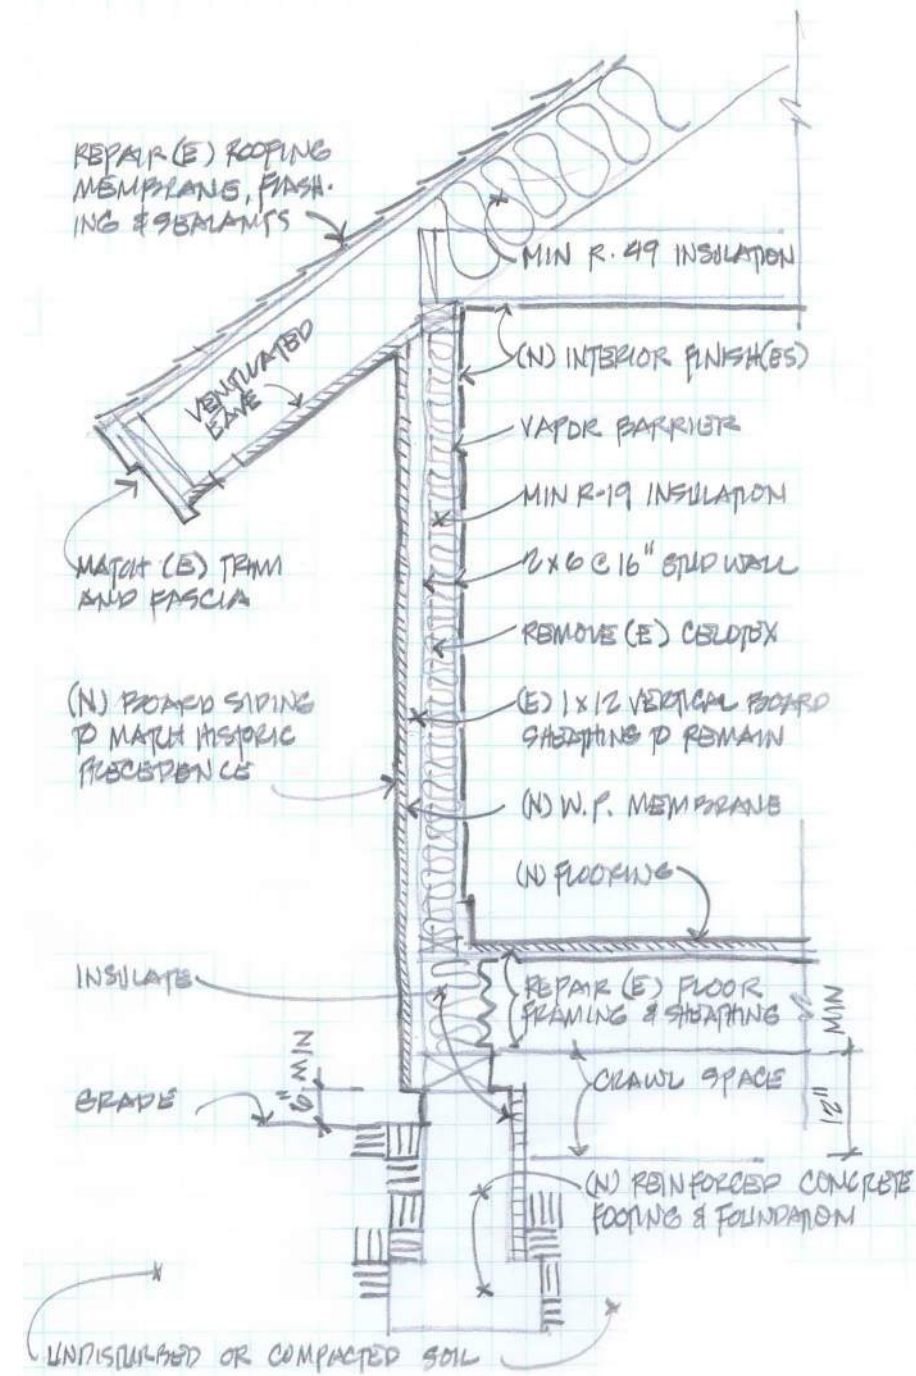 REPAIR (E) ROOFING
MEMBRANE, FLASH-
ING & SEALANTS
MIN R-49 INSULATION
VENTILATED
EAVE
(N) INTERIOR FINISH(ES)
VAPOR BARRIER
MIN R-19 INSULATION
MATCH (E) TRIM
AND FASCIA
2x6 @ 16" STUD WALL
REMOVE (E) CELOTEX
(N) BOARD SIDING
TO MATCH HISTORIC
PRECEDENCE
(E) 1x12 VERTICAL BOARD
SHEATHING TO REMAIN
(N) W.P. MEMBRANE
(N) FLOORING
INSULATE
REPAIR (E) FLOOR
FRAMING & SHEATHING
MIN
12"
CRAWL SPACE
MIN
6"
GRADE
(N) REINFORCED CONCRETE
FOOTING & FOUNDATION
UNDISTURBED OR COMPACTED SOIL